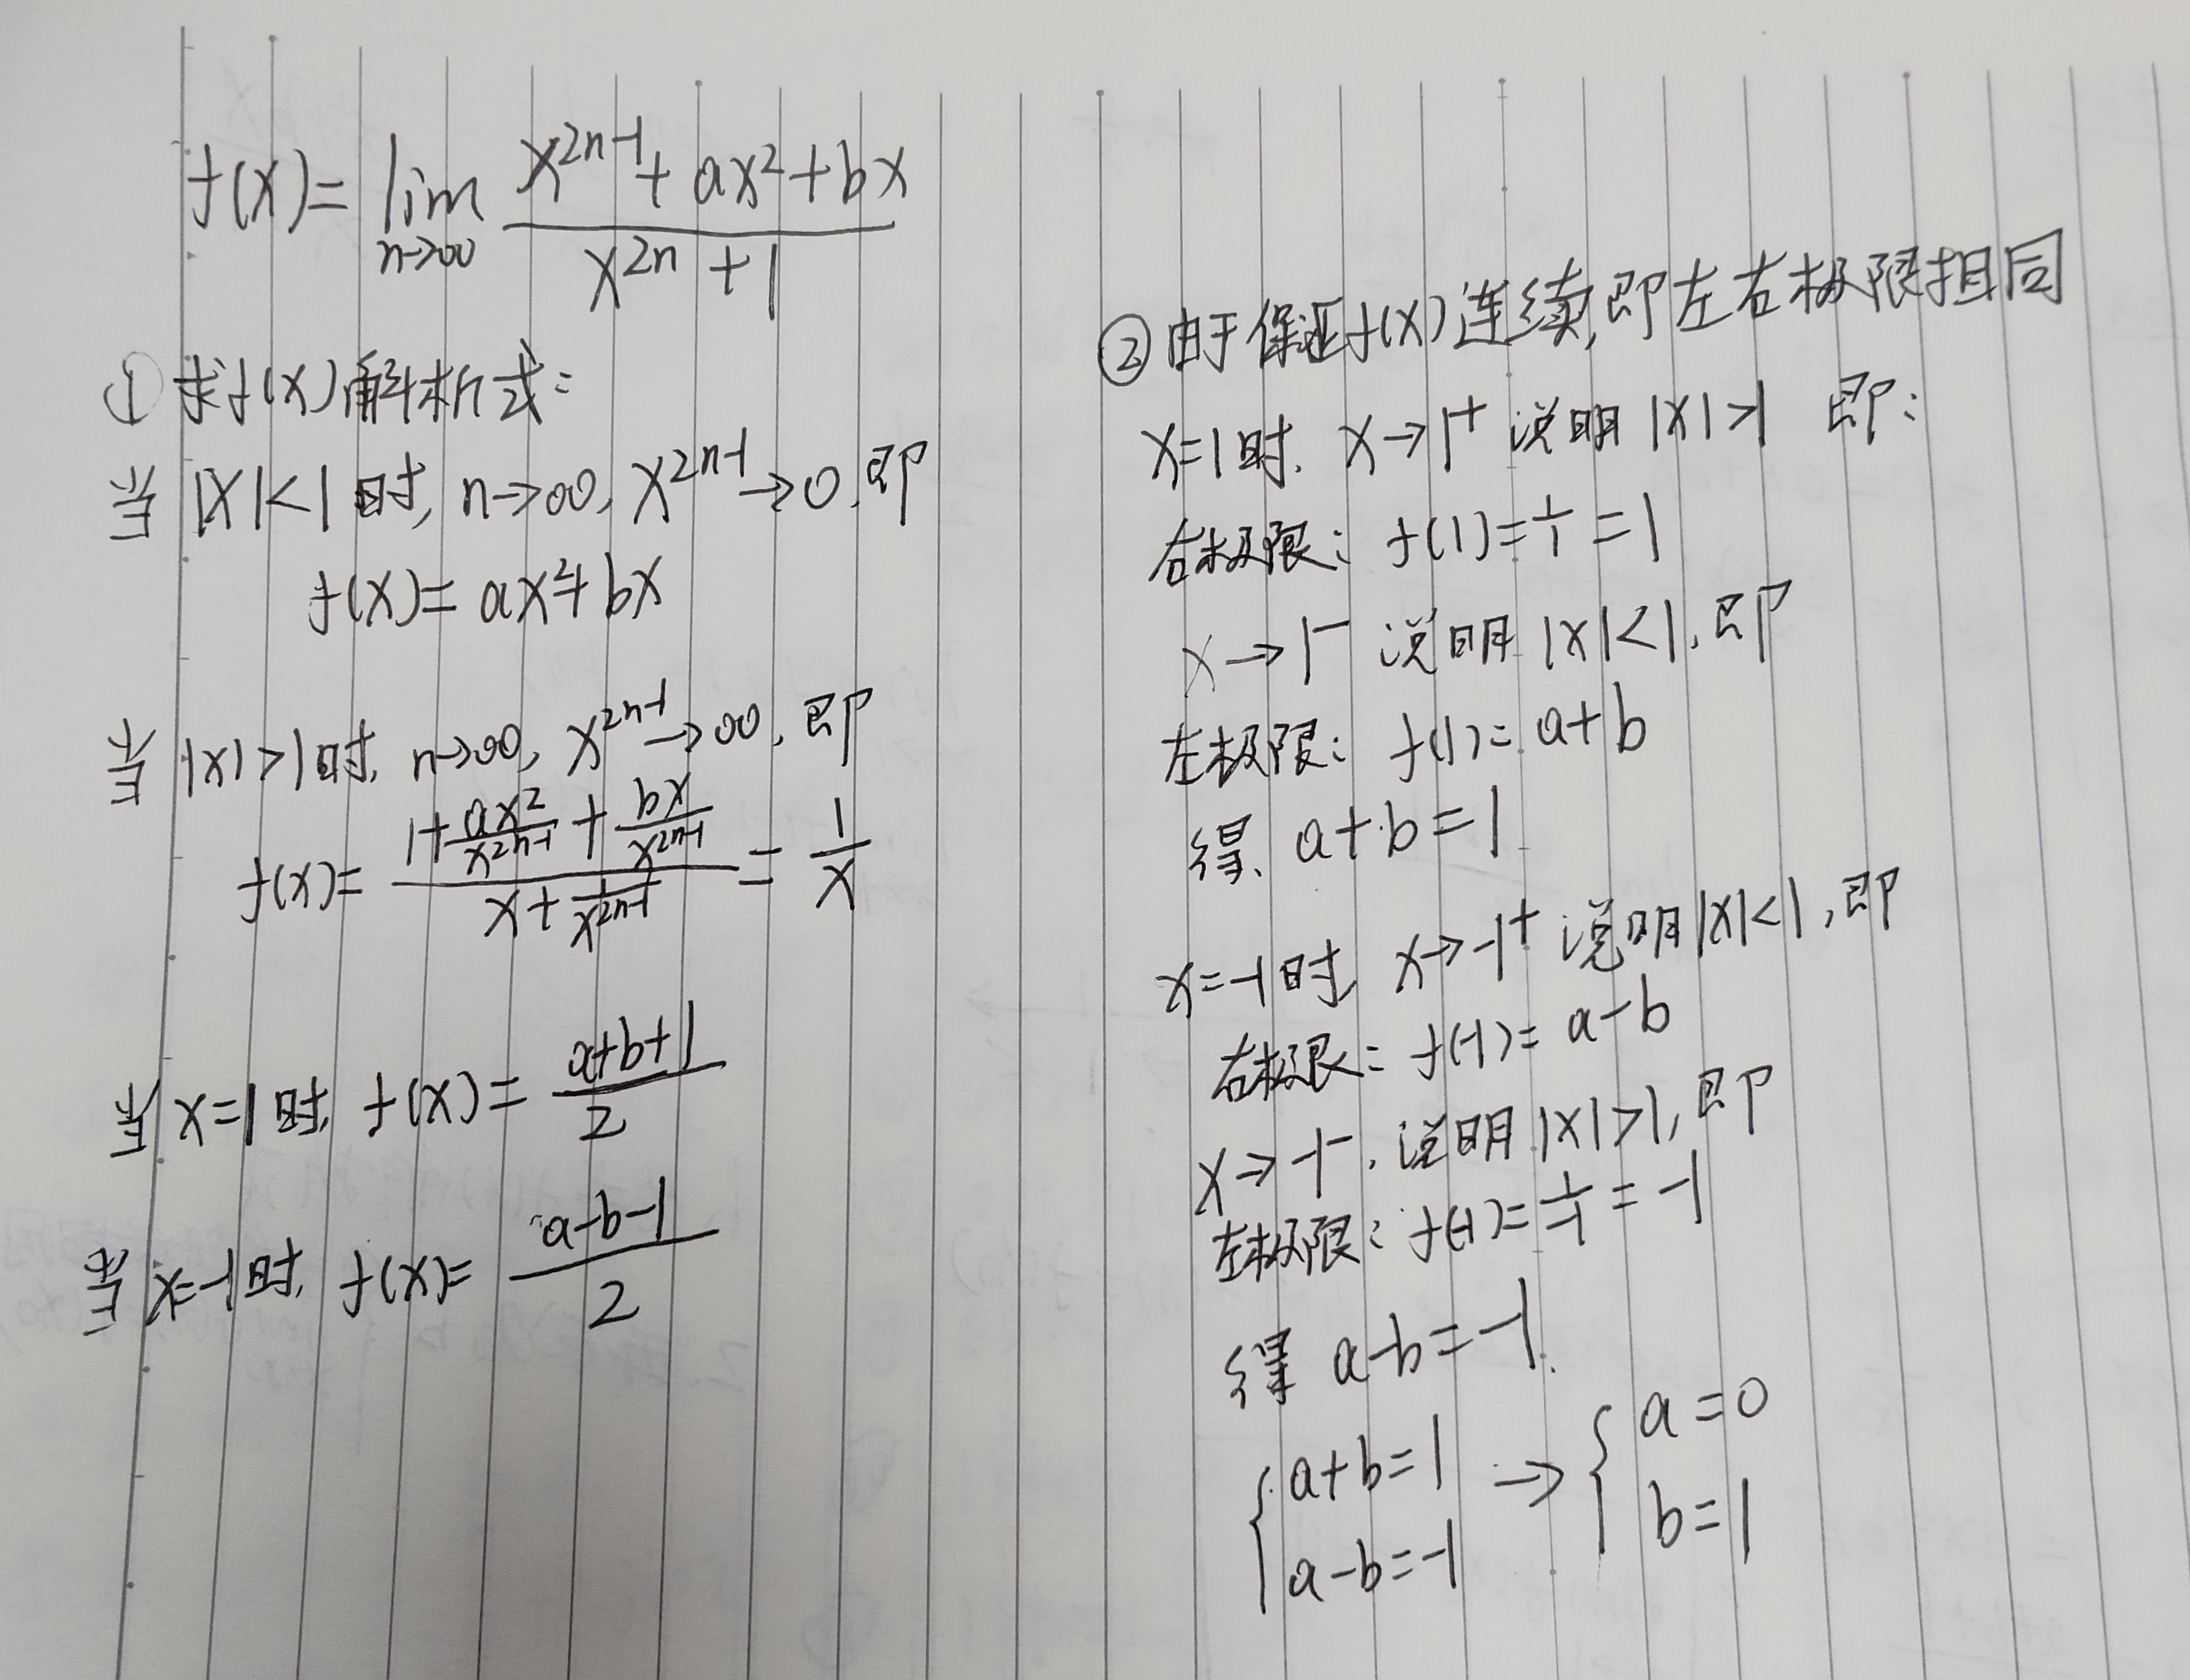 f(x)=lim n→∞ (x^{2n-1}+ax²+bx)/(x^{2n}+1)
① 求f(x)解析式:
当 |x|<1 时, n→∞, x^{2n-1}→0, 即
f(x)=ax²+bx
当 |x|>1时, n→∞, x^{2n-1}→∞, 即
f(x)= (1+ax²/x^{2n-1}+bx/x^{2n-1})/(x+1/x^{2n-1}) = 1/x
当 x=1 时, f(x)= (a+b+1)/2
当 x=-1时, f(x)= (a-b-1)/2
② 由于保证f(x)连续,即左右极限相同
x=1时. x→1⁺ 说明 |x|>1 即:
右极限: f(1)=1/1=1
x→1⁻ 说明 |x|<1, 即
左极限: f(1)=a+b
得. a+b=1
x=-1时, x→-1⁺ 说明|x|<1, 即
右极限: f(-1)=a-b
x→-1⁻, 说明 |x|>1, 即
左极限: f(-1)=1/-1=-1
得 a-b=-1.
{a+b=1 → {a=0
a-b=-1 b=1